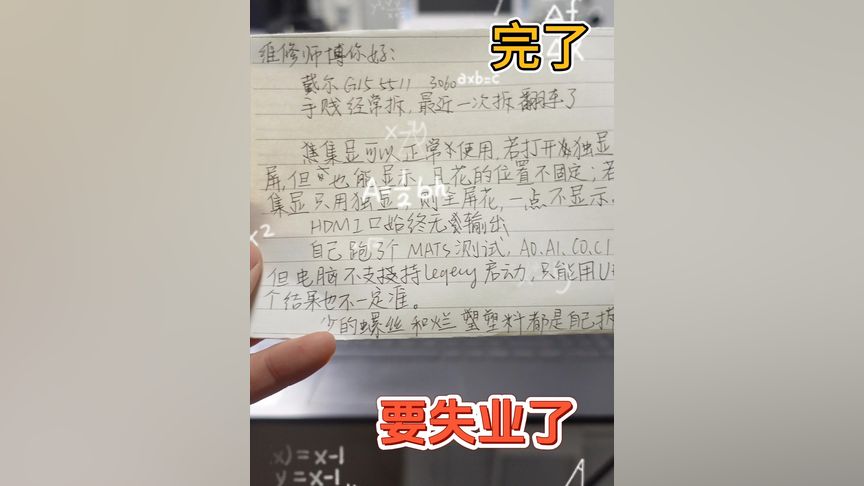 完了
Δf
ΔX
维修师博你好:
戴尔 G15 5511 3060
axb=c
手贱经常拆,最近一次拆翻车了
x-y
集显可以正常使用,若打开独显
屏,但也能显示,且花的位置不固定;若
A=1/2 bh
集显只用独显,则全屏花,一点不显示.
HDMI口始终无输出
x2
自己跑了个 MATS测试, A0.A1.C0.C1
但电脑不支持legecy启动,只能用U
个结果也不一定准。
少的螺丝和烂塑料都是自己
要失业了
x) = x-1
y = x-1